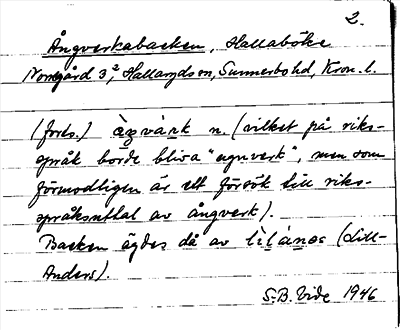 2.
Ångverkabacken, Hallaböke
Norregård 3², Hallaryds sn, Sunnerbo hd, Kron. l.
(forts.) àŋvǽrk n. (vilket på riks-
språk borde bliva "ugnverk", men som
förmodligen är ett försök till riks-
språksuttal av ångverk).
Backen ägdes då av lìlános (Lill-
Anders).
S-B. Vide 1946